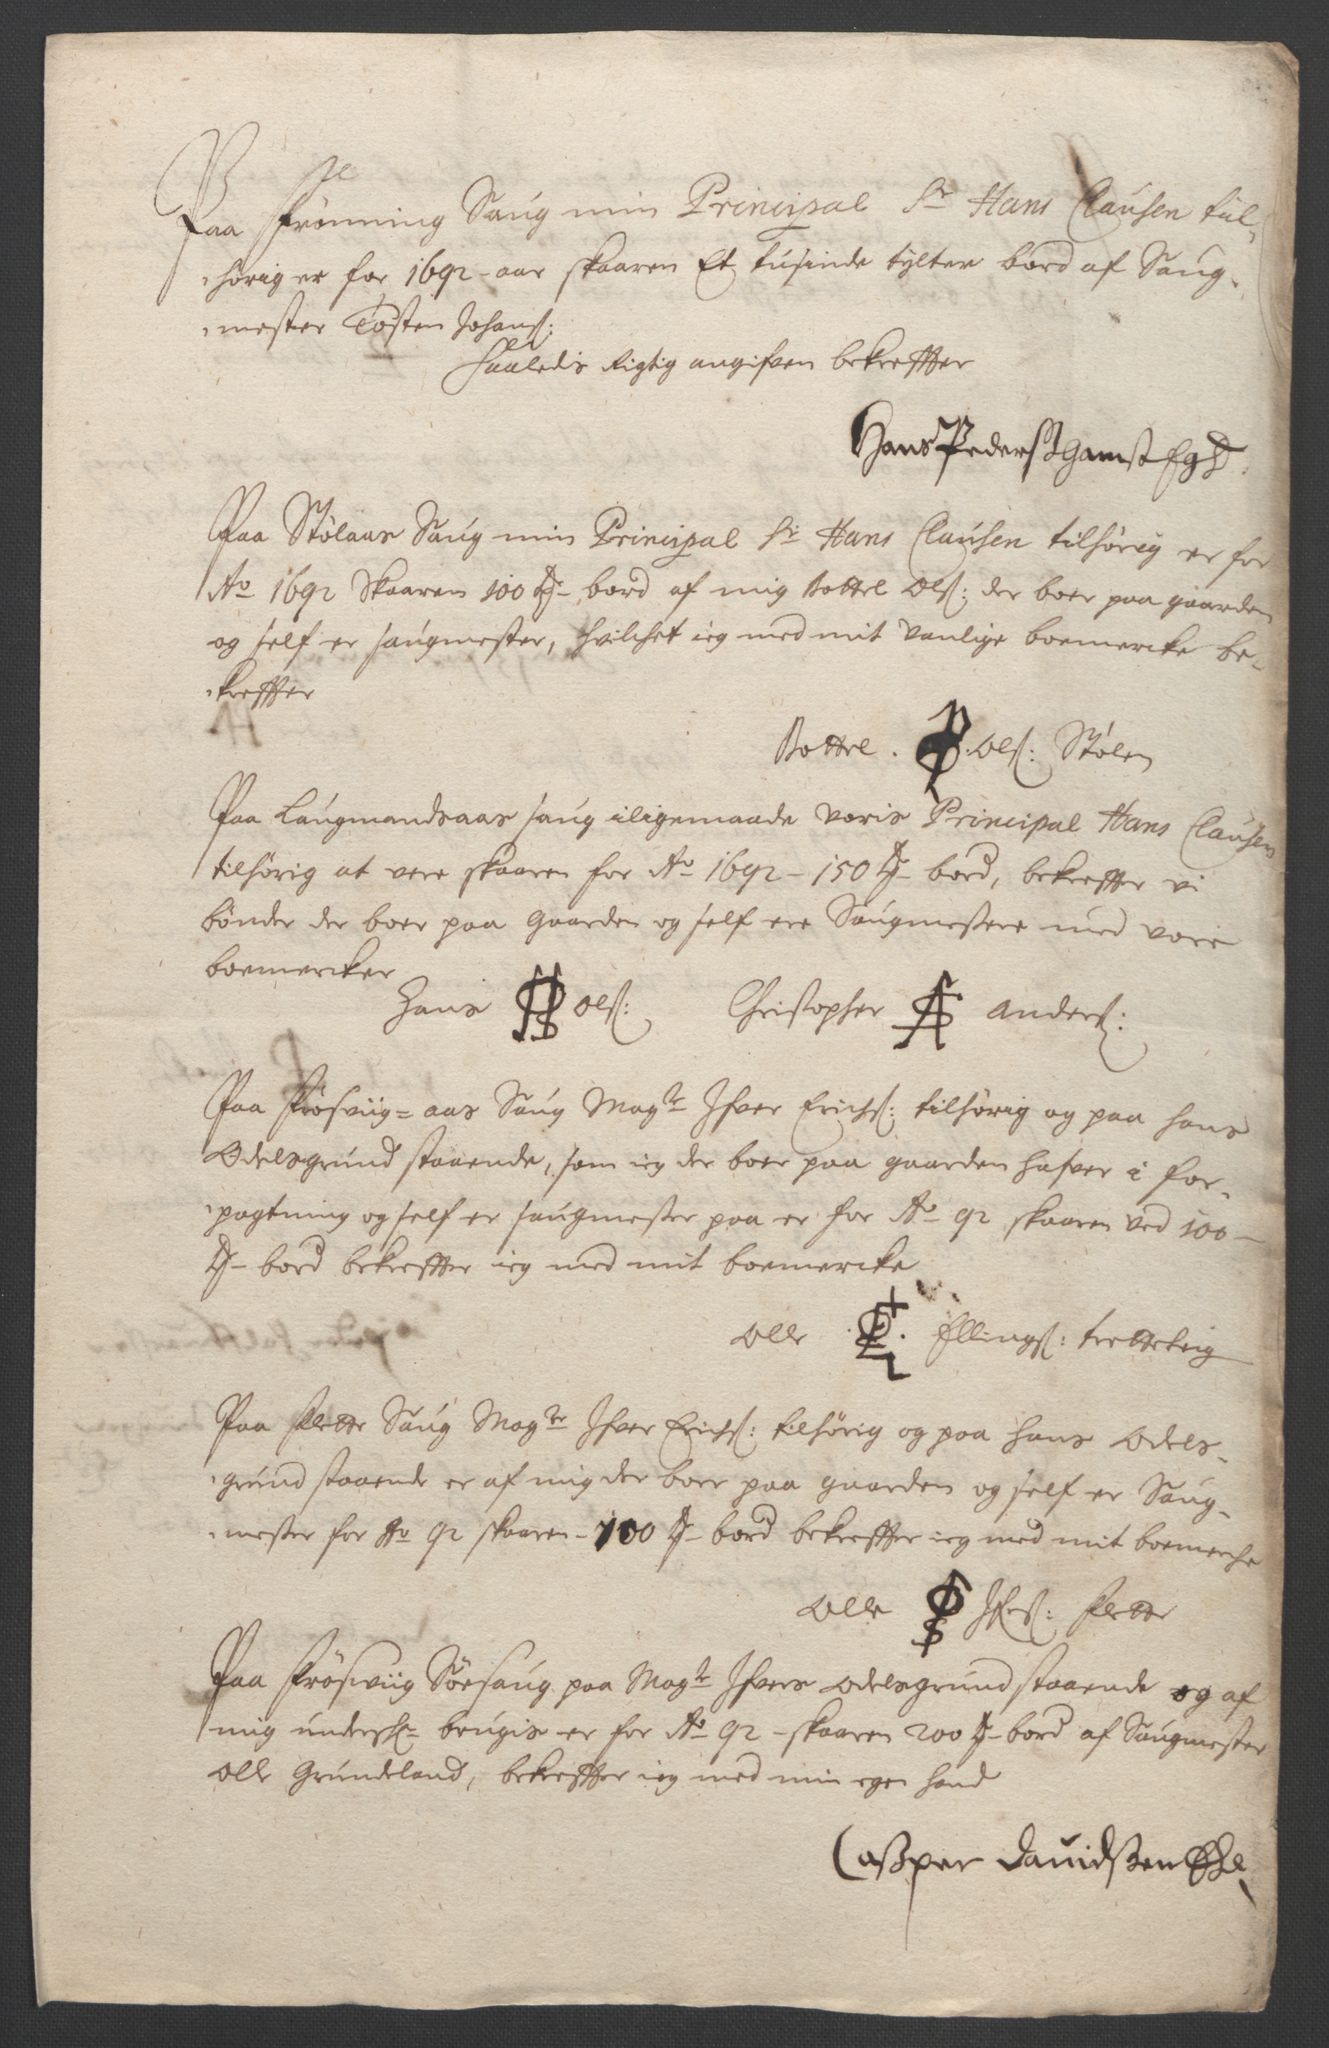 Paa Frønning Saug min Principal Sr Hans Clausen til-
hørig er for 1692 - aar skaaren Et tusinde tylter bord af Saug-
mester Tosten Johans:
Saaledis Rigtig angifven bekreffter
Hans Pederß Gamst Egh
Paa Stølaas Saug min Principal Sr Hans Clausen tilhørig er for
Ao 1692 Skaaren 100 tr- bord af mig Bottel Ols: der boer paa gaarden
og self er saugmester, hvilchet ieg med mit vanlige boemercke be-
kreffter
Bottel Ols: Stølen
Paa Laugmandsaas saug iligemaade voris Principal Hans Clausen
tilhørig at vere skaaren for Ao 1692 - 150 tr- bord, bekreffter vi
bønder der boer paa gaarden og self ere Saugmestere med vore
boemercker
Hans Ols: Christopher Anders:
Paa Frøsviig = aas Saug Magr Ifver Erichs: tilhørig og paa hans
Odelsgrund staaende, som ieg der boer paa gaarden hafver i for-
pagtning og self er saugmester paa er for Ao 92 skaaren ved 100 -
tr- bord bekreffter ieg med mit boemercke
Olle E Ellings: tretteteig
Paa Flette Saug Magr Ifver Erichs: tilhørig og paa hans Odels-
grund staaende er af mig der boer paa gaarden og self er Saug-
mester for Ao 92 skaaren - 100 tr- bord bekreffter ieg med mit boemerche
Olle Ifvers: Flette
Paa Frøsviig Sørsaug paa Magr Ifvers Odelsgrund staaende og af
mig undersk- brugis er for Ao 92 - skaaren 200 tr- bord af Saugmester
Olle Grundeland, bekreffter ieg med min egen hand
Casper Dauidsßen